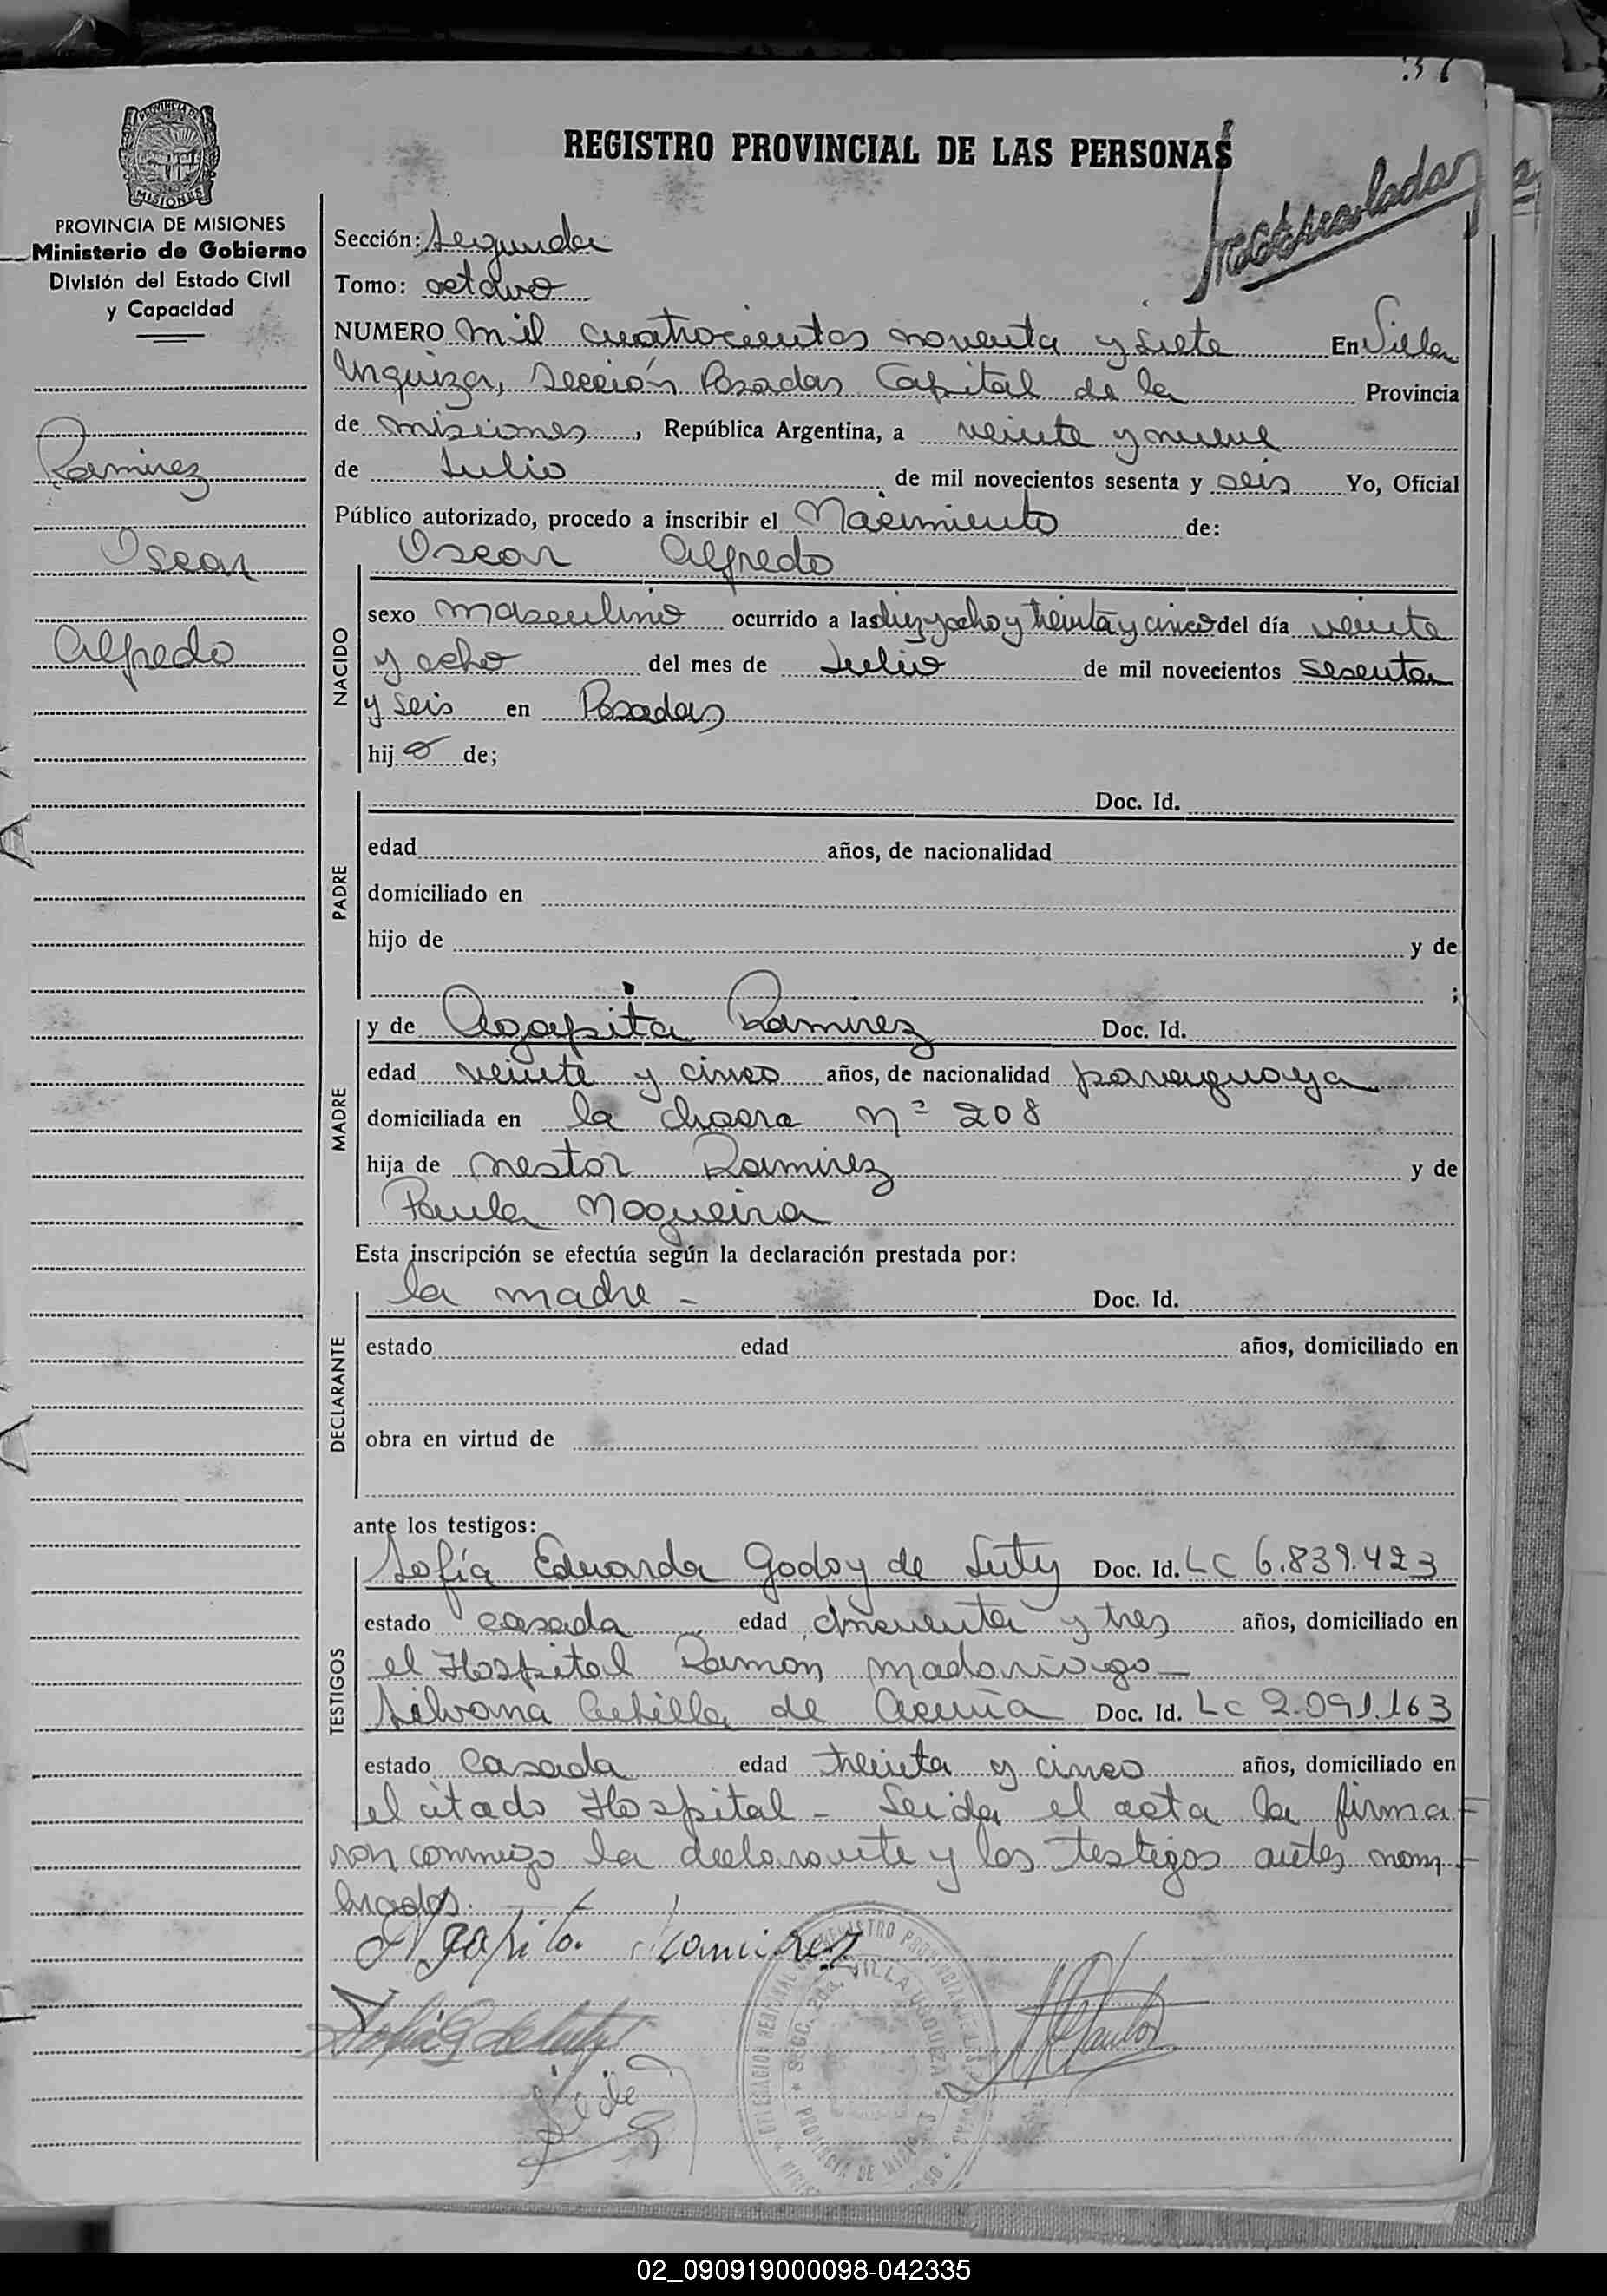 37
PROVINCIA DE MISIONES
PROVINCIA DE MISIONES
Ministerio de Gobierno
División del Estado Civil
y Capacidad
Ramirez
Oscar
Alfredo
REGISTRO PROVINCIAL DE LAS PERSONAS
Matriculado
Sección: Segunda
Tomo: octavo
NUMERO mil cuatrocientos noventa y siete En Villa
Urquiza, Sección Posadas Capital de la Provincia
de misiones, República Argentina, a veinte y nueve
de Julio de mil novecientos sesenta y seis Yo, Oficial
Público autorizado, procedo a inscribir el Nacimiento de:
Oscar Alfredo
NACIDO
sexo masculino ocurrido a las diez y ocho y treinta y cinco del día veinte
y ocho del mes de Julio de mil novecientos sesenta
y seis en Posadas
hijo de;
PADRE
Doc. Id.
edad años, de nacionalidad
domiciliado en
hijo de y de
;
MADRE
y de Agapita Ramirez Doc. Id.
edad veinte y cinco años, de nacionalidad paraguaya
domiciliada en la chacra nº 208
hija de Nestor Ramirez y de
Paula Nogueira
Esta inscripción se efectúa según la declaración prestada por:
DECLARANTE
la madre - Doc. Id.
estado edad años, domiciliado en
obra en virtud de
ante los testigos:
TESTIGOS
Sofía Eduarda Godoy de Luty Doc. Id. LC 6.839.423
estado casada edad cincuenta y tres años, domiciliado en
el Hospital Ramon madariaga -
Silvana de Acuña Doc. Id. LC 2.091.163
estado casada edad treinta y cinco años, domiciliado en
el citado Hospital - Leida el acta la firma-
ron conmigo la declarante y los testigos antes nom-
brados.
Agapita Ramirez
Sofía G de Luty
DELEGACION REGIONAL DEL REGISTRO PROVINCIAL DE LAS PERSONAS
SECC. 2da. VILLA URQUIZA
PROVINCIA DE MISIONES
02_090919000098-042335